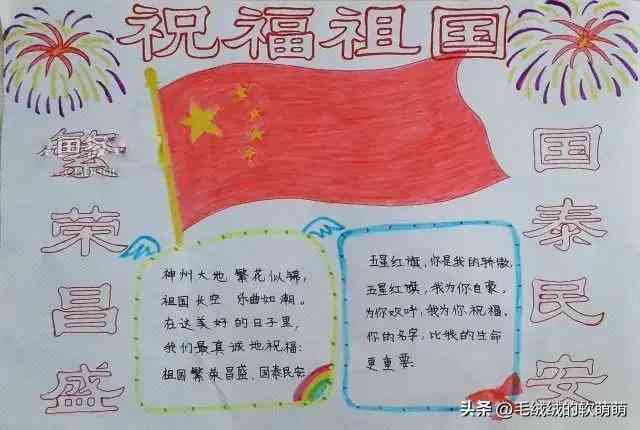 祝福祖国
繁荣昌盛
国泰民安
神州大地 繁花似锦,
祖国长空 乐曲如潮。
在这美好的日子里,
我们最真诚地祝福:
祖国繁荣昌盛、国泰民安
五星红旗,你是我的骄傲,
五星红旗,我为你自豪,
为你欢呼,我为你祝福,
你的名字,比我的生命
更重要
头条 @毛绒绒的软萌萌